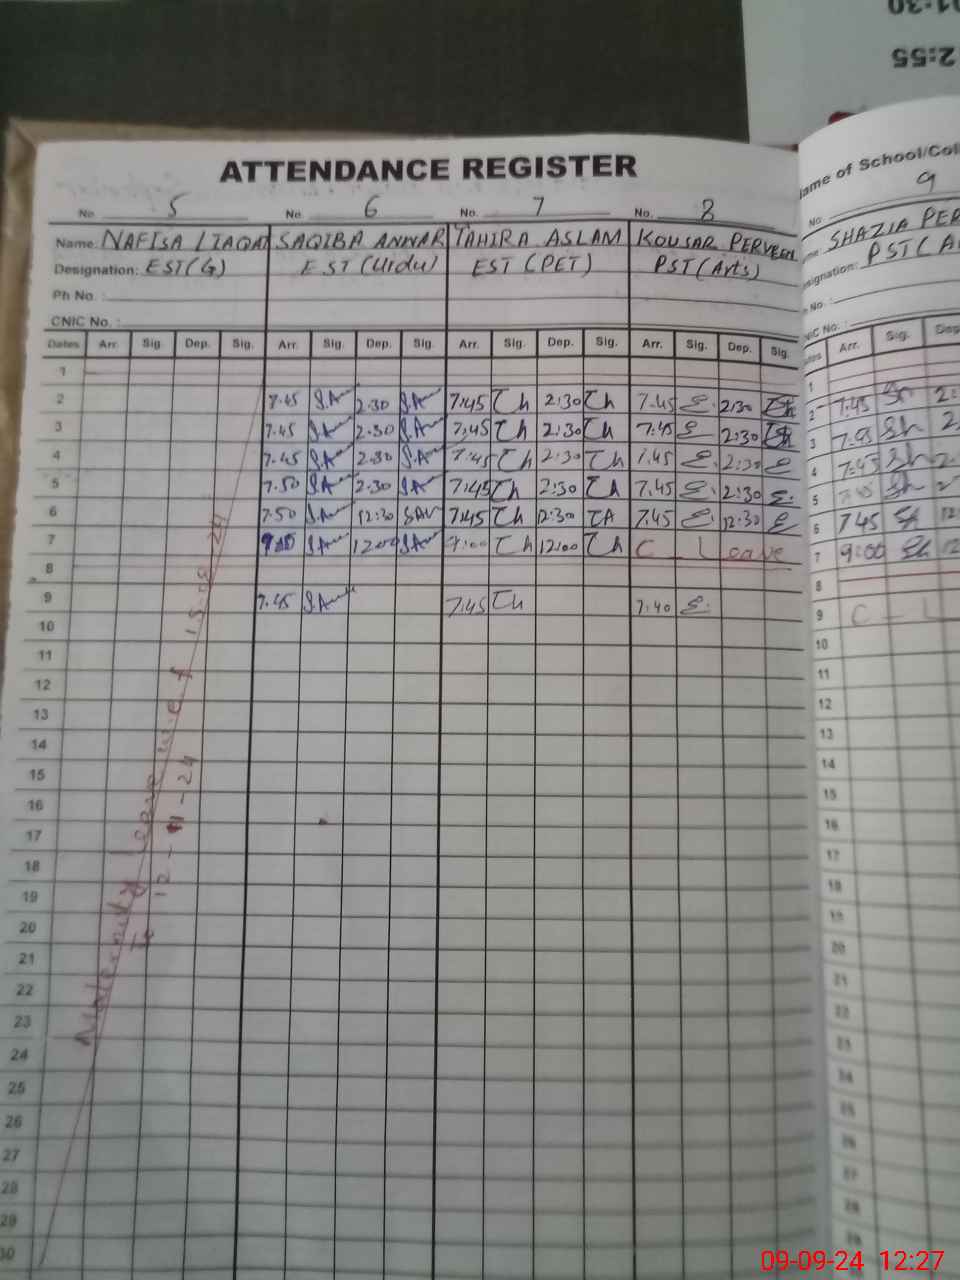 2:55
ATTENDANCE REGISTER
No. 5 No. 6 No. 7 No. 8
Name. NAFISA LIAQAT SAQIBA ANWAR TAHIRA ASLAM KOUSAR PERVEEN
Designation: EST(G) EST(Urdu) EST (PET) PST(Arts)
Ph No. :
CNIC No. :
Dates Arr. Sig. Dep. Sig. Arr. Sig. Dep. Sig. Arr. Sig. Dep. Sig. Arr. Sig. Dep. Sig.
1
2 7.45 S.An 2.30 S.An 7:45 Th 2:30 Th 7.45 2:30
3 7.45 S.An 2.30 S.An 7:45 Th 2:30 Th 7:45 2:30
4 7.45 S.An 2.30 S.An 7:45 Th 2:30 Th 7.45 2:30
5 7.50 S.An 2.30 S.An 7:45 Th 2:30 Th 7.45 2:30
6 7.50 S.An 12:30 SAn 7:45 Th 12:30 Th 7.45 12:30
7 S.An 12:00 S.An 9:00 Th 12:00 Th C_Leave
8
9 7.45 S.An 7:45 Th 7.40
10
11
12
13
14
15
16
17
18
19
20
21
22
23
24
25
26
27
28
29
30
Maternity leave w.e.f 15-08-24
To 12-11-24
Name of School/Col
No 9
SHAZIA PER
Designation: PST(A
No. :
CNIC No. :
Arr. Sig. Dep
1
2 7:45 Sh 2:
3 Sh 2
4 7:45 Sh 2
5 7:45 Sh 2
6 7 45 Sh 12
7 9:00 Sh 12
8
9 C _ L
10
11
12
13
14
15
16
17
18
19
20
21
22
23
24
25
26
27
28
29
09-09-24 12:27